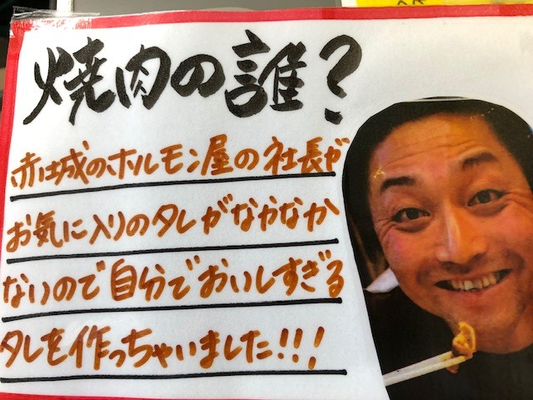 焼肉の誰?
赤城のホルモン屋の社長が
お気に入りのタレがなかなか
ないので自分でおいしすぎる
タレを作っちゃいました!!!